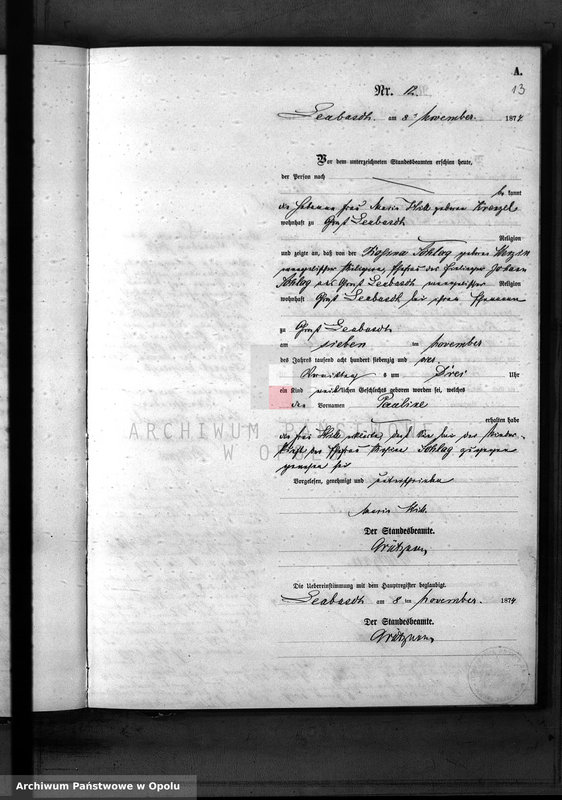 A.
Nr. 12.
13
Leabasch. am 8 November. 1874
Vor dem unterzeichneten Standesbeamten erschien heute,
der Person nach
be kannt
die Hebamme Frau Maria geboren
wohnhaft zu Groß Leabasch
Religion
und zeigte an, daß von der Rosina Schlag geboren
evangelischer Religion, Ehefrau des Johann
Schlag Groß Leabasch evangelischer Religion
wohnhaft Groß Leabasch bei ihrem Ehemann
zu Groß Leabasch
am sieben ten November
des Jahres tausend acht hundert siebenzig und vier
Vormittag s um Drei Uhr
ein Kind weiblichen Geschlechts geboren worden sei, welches
den Vornamen Pauline
erhalten habe
die Frau erklärte, daß sie bei der Nieder-
kunft der Ehefrau Rosina Schlag zugegen
gewesen sei
Vorgelesen, genehmigt und unterschrieben
Maria
Der Standesbeamte.
Die Uebereinstimmung mit dem Hauptregister beglaubigt.
Leabasch am 8 ten November. 1874
Der Standesbeamte.
ARCHIWUM PAŃSTWOWE
W OPOLU
Archiwum Państwowe w Opolu